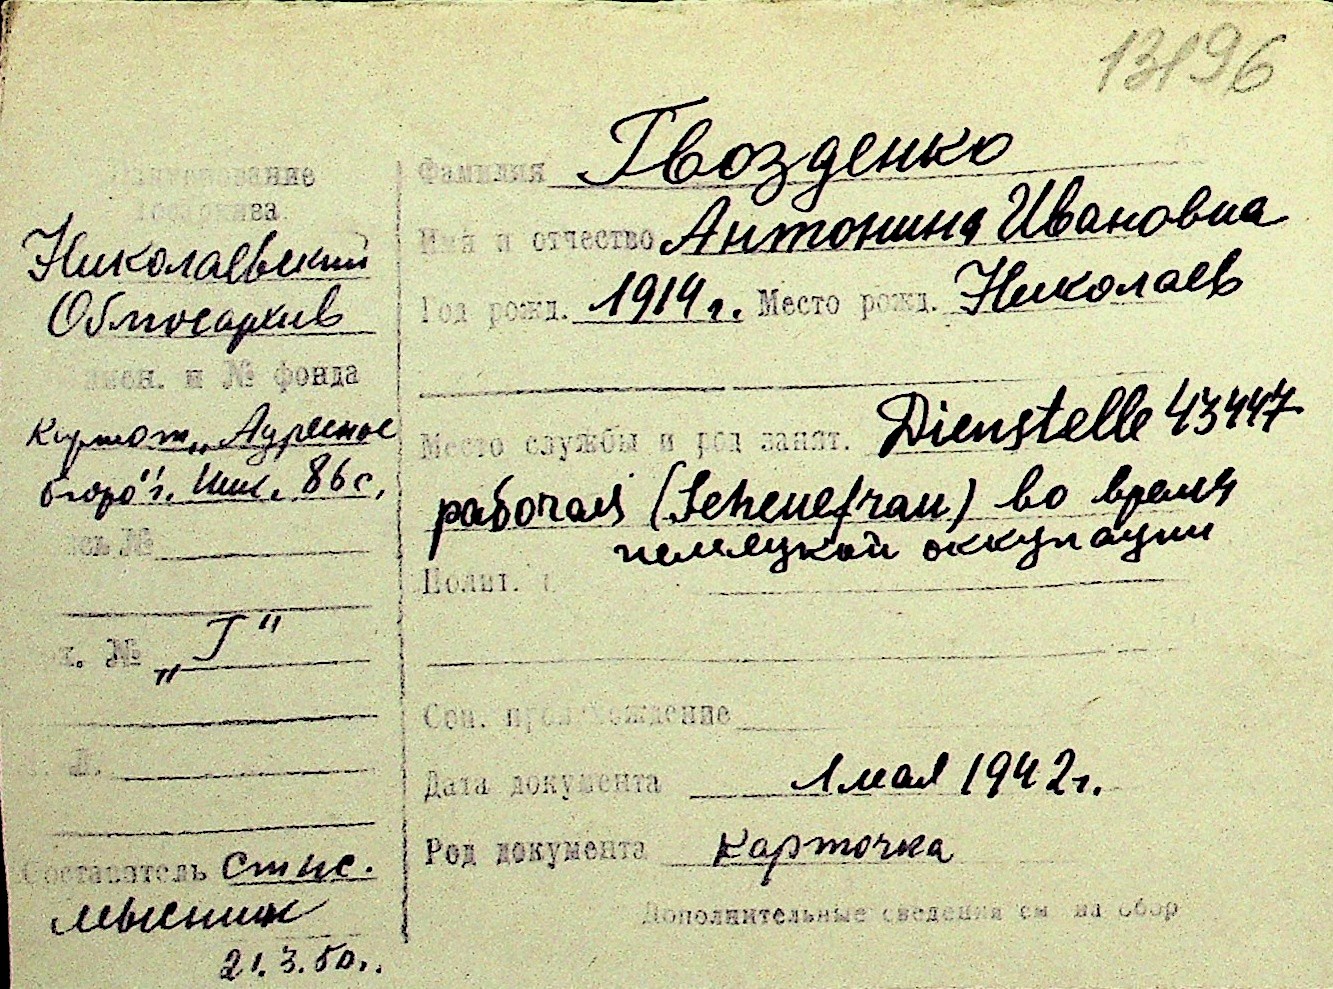 13196
Наименование
госархива
Николаевский
Облгосархив
наимен. и № фонда
картот. „Адресное
бюро" г. Ник. 86 с.
№
№ „Г"
Л.
Составитель стис.
21.3.50 г.
Фамилия Гвозденко
Имя и отчество Антонина Ивановна
Год рожд. 1914 г. Место рожд. Николаев
Место службы и род занят. Dienstelle 43447
рабочая (Schenefrau) во время
немецкой оккупации
Полит.
Соц. происхождение
Дата документа 1 мая 1942 г.
Род документа карточка
Дополнительные сведения см на обор